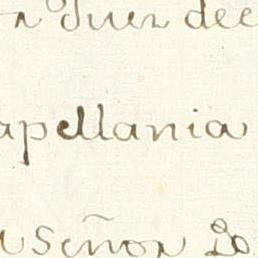 Juez dee
apellania
Señor Lo